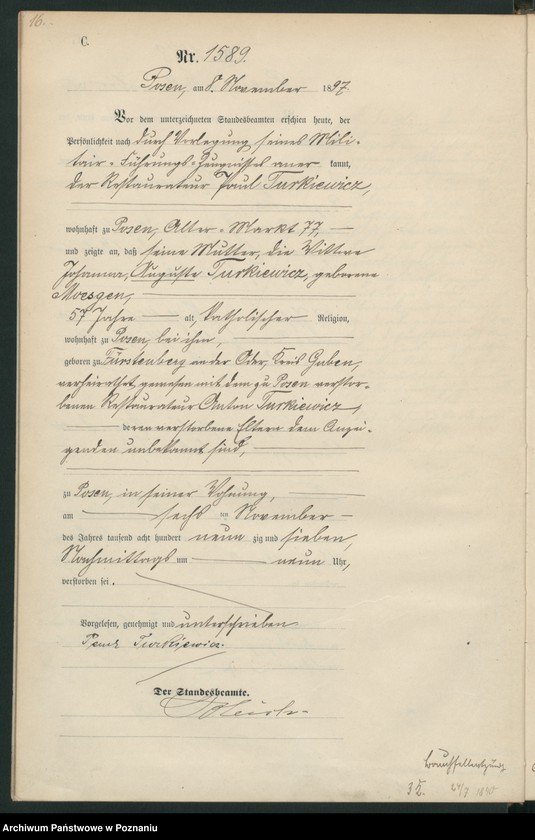 16.
C.
Nr. 1589.
Posen, am 8. November 1897
Vor dem unterzeichneten Standesbeamten erschien heute, der
Persönlichkeit nach durch Vorlegung seines Mili-
tair-Führungs-Zeugnisses aner kannt,
der Restaurateur Paul Turkiewicz,
wohnhaft zu Posen, Alter-Markt 77,
und zeigte an, daß seine Mutter, die Wittwe
Johanna, Auguste Turkiewicz, geborene
Moesgen,
57 Jahre alt, katholischer Religion,
wohnhaft zu Posen, bei ihm,
geboren zu Fürstenberg an der Oder, Kreis Guben,
verheirathet gewesen mit dem zu Posen verstor-
benen Restaurateur Anton Turkiewicz,
deren verstorbene Eltern dem Anzei-
genden unbekannt sind,
zu Posen, in seiner Wohnung,
am sechs ten November
des Jahres tausend acht hundert neun zig und sieben,
Nachmittags um neun Uhr,
verstorben sei.
Vorgelesen, genehmigt und unterschrieben
Paul Turkiewicz.
Der Standesbeamte.
Bauchfellentzündg
32. 24/7 1840
Archiwum Państwowe w Poznaniu